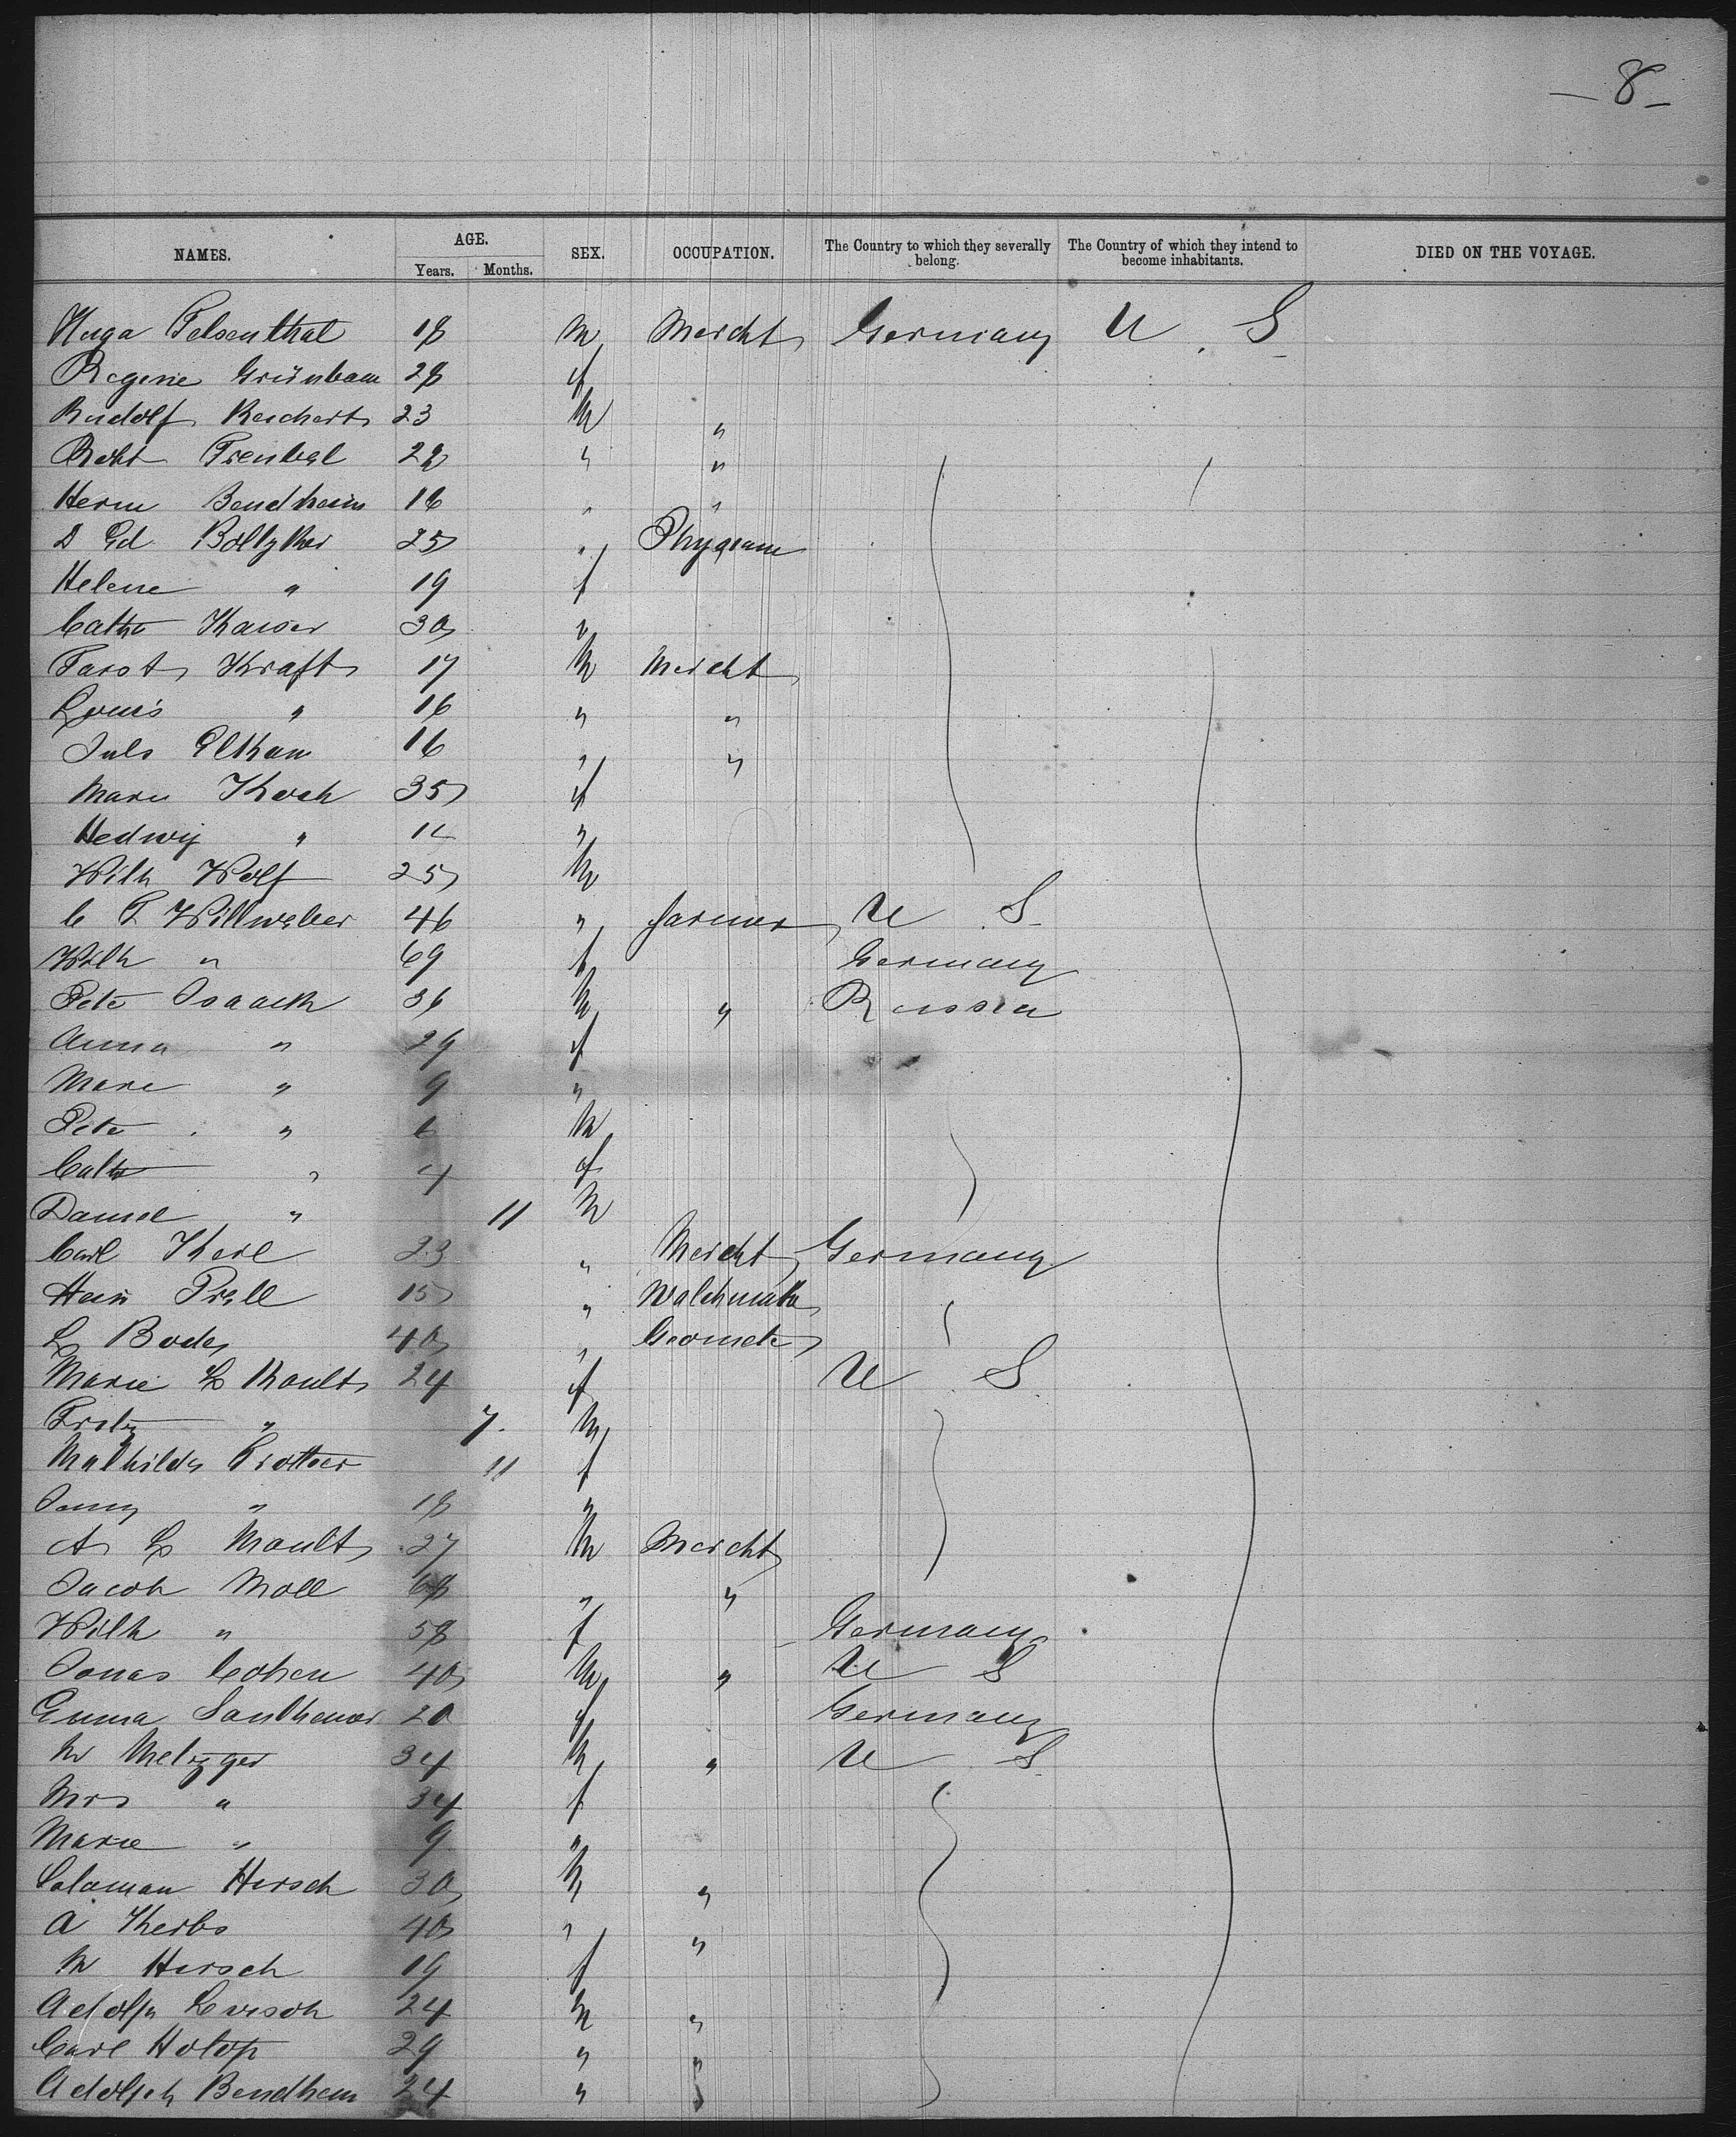 — 8 —
NAMES. AGE. SEX. OCCUPATION. The Country to which they severally belong. The Country of which they intend to become inhabitants. DIED ON THE VOYAGE.
Years. Months.
Hugo Felsenthal 18 M Mercht Germany U. S.
Regine Grünbaum 28 f
Rudolf Reichert 23 M "
Robt Frenkel 22 " "
Herm Bendheim 16 " "
D Ed 25 "
Helene " 19 f
Cath Kaiser 30 "
Kraft 17 M Mercht
Louis " 16 " "
Juls Elkan 16 " "
Marie Koch 35 f
Hedwig " 11 "
Wilh Wolf 25 M
C F Willweber 46 " farmer U S
Wilh " 69 f Germany
Pete Isaack 36 M " Russia
Anna " 29 f
Marie " 9 "
Pete " 6 M
Cath " 4 f
Daniel " 11 M
Carl Kerl 23 " Mercht Germany
Hein Prell 15 "
L Bode 40 " Geomete
Marie L 24 f U S
Fritz " 7 M
Mathilde 11 f
Jenny " 18 "
A L 27 M Mercht
Jacob Moll 68 " "
Wilh " 58 f Germany
Jonas Cohen 40 M " U S
Emma 20 f Germany
M Metzger 34 M " U S
Mrs " 34 f
Marie " 9 "
Salaman Hirsch 30 M "
A Kerbs 40 " "
M Hirsch 19 f
Adolph Levisoh 24 M "
Carl Hotop 29 " "
Adolph Bendheim 24 " "